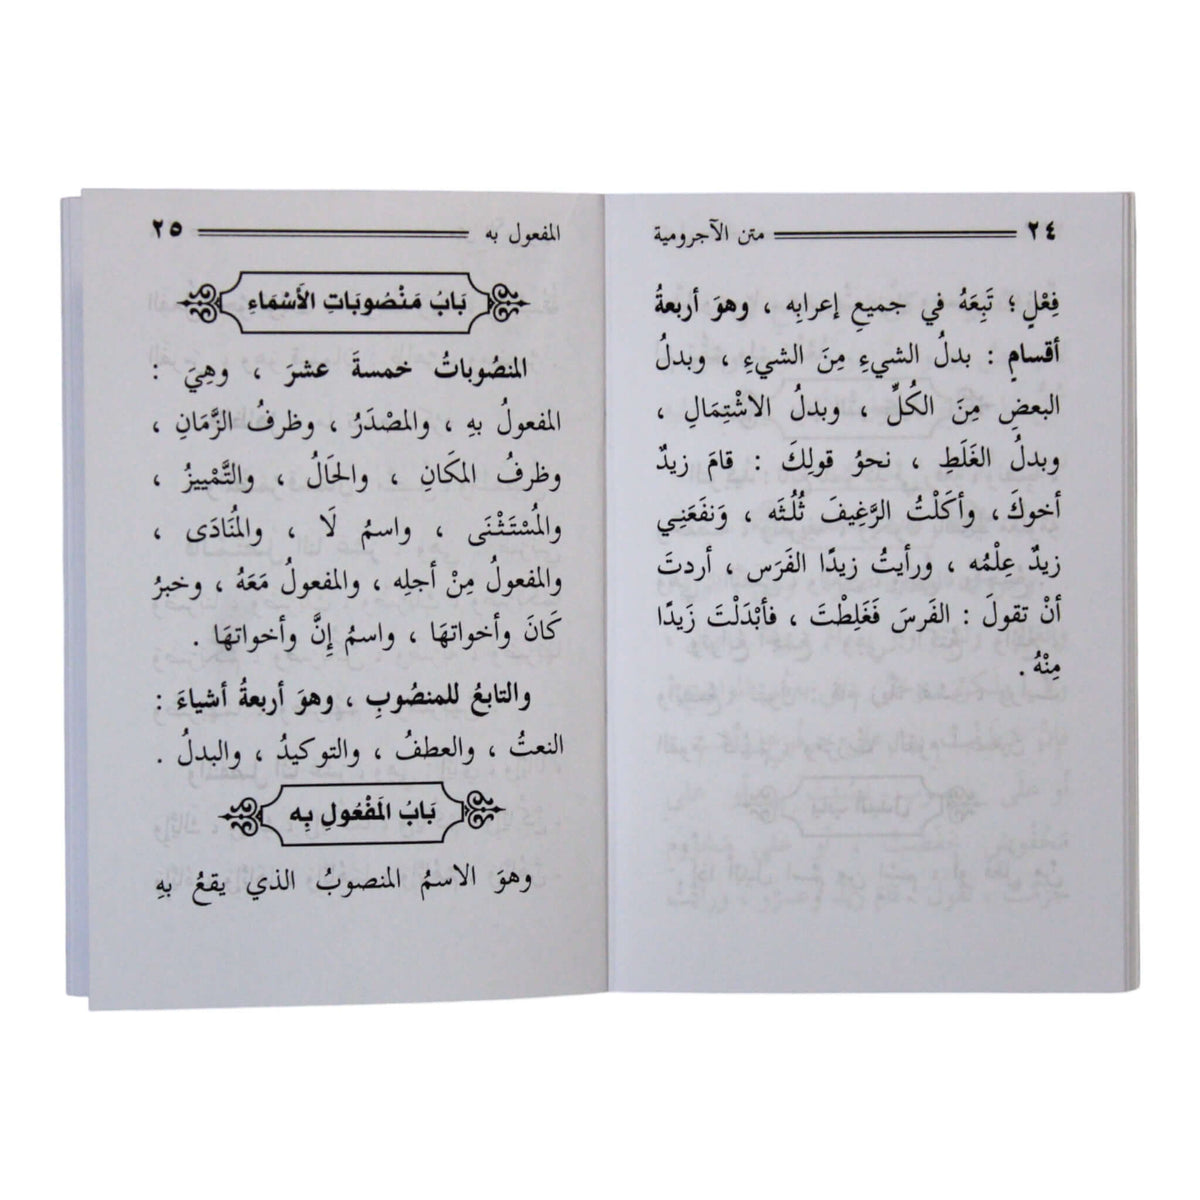 ٢٤ متن الآجرومية
فِعْلٍ ؛ تَبِعَهُ في جميعِ إعرابِه ، وهوَ أربعةُ
أقسامٍ : بدلُ الشيءِ مِنَ الشيءِ ، وبدلُ
البعضِ مِنَ الكُلِّ ، وبدلُ الاشْتِمَالِ ،
وبدلُ الغَلَطِ ، نحوُ قولِكَ : قامَ زيدٌ
أخوكَ، وأكَلْتُ الرَّغِيفَ ثُلُثَه ، وَنفَعَنِي
زيدٌ عِلْمُه ، ورأيتُ زيدًا الفَرَس ، أردتَ
أنْ تقولَ : الفَرسَ فَغَلِطْتَ ، فأبْدَلْتَ زَيدًا
مِنْهُ .
المفعول به ٢٥
بَابُ مَنْصُوبَاتِ الأَسْمَاءِ
المنصُوباتُ خمسةَ عشرَ ، وهِيَ :
المفعولُ بهِ ، والمصْدَرُ ، وظرفُ الزَّمَانِ ،
وظرفُ المكَانِ ، والحَالُ ، والتَّمْييزُ ،
والمُسْتَثْنَى ، واسمُ لَا ، والمُنَادَى ،
والمفعولُ مِنْ أجلِه ، والمفعولُ مَعَهُ ، وخبرُ
كَانَ وأخواتهَا ، واسمُ إنَّ وأخواتهَا .
والتابعُ للمنصُوبِ ، وهوَ أربعةُ أشياءَ :
النعتُ ، والعطفُ ، والتوكيدُ ، والبدلُ .
بَابُ المَفْعُولِ بِه
وهوَ الاسمُ المنصوبُ الذي يقعُ بهِ